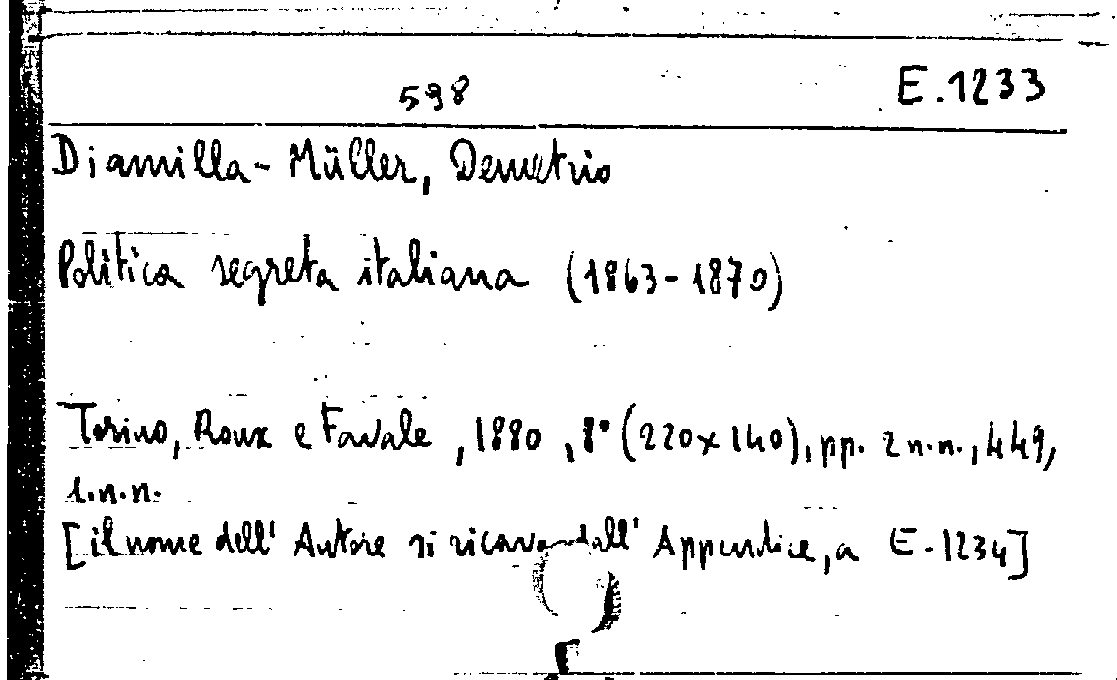 598 E.1233
Diamilla-Müller, Demetrio
Politica segreta italiana (1863-1870)
Torino, Roux e Favale, 1880, 8° (220x140), pp. 2 n.n., 449,
1.n.n.
[il nome dell' Autore si ricava dall' Appendice, a E.1234]